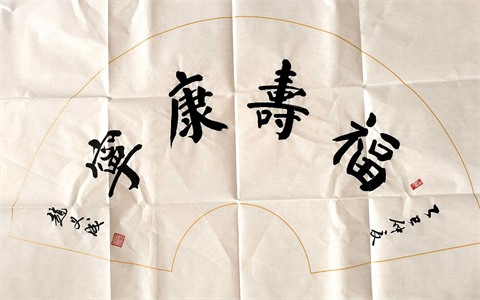 福壽康寧
乙巳仲夏